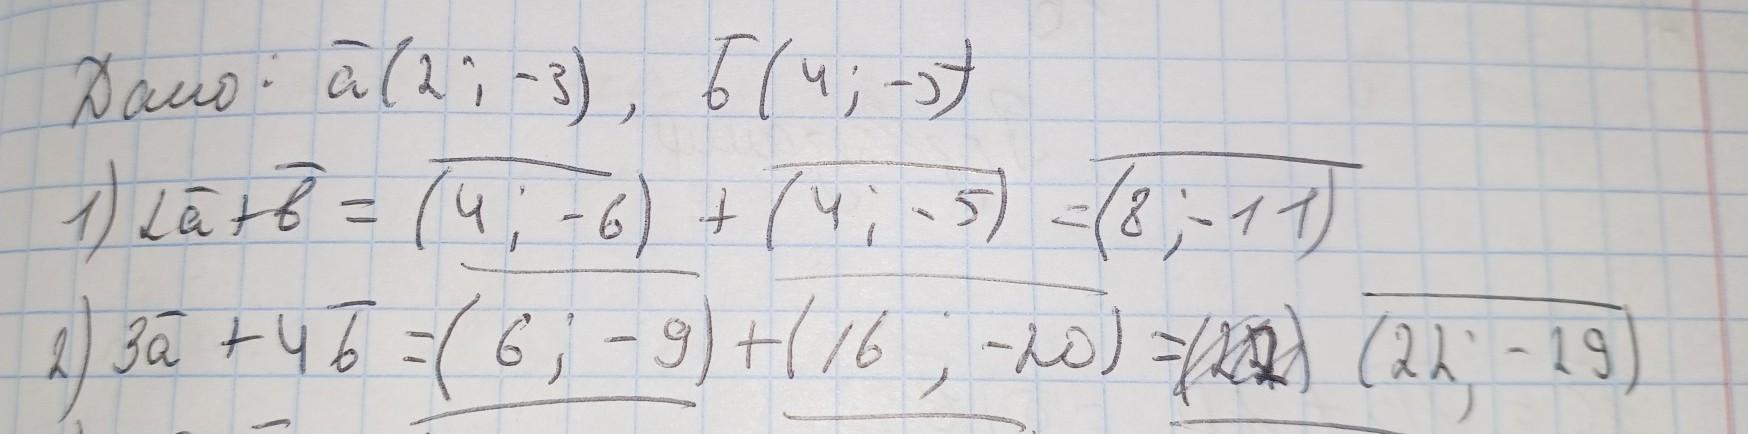 Дано: a̅(2; -3), b̅(4; -5)
1) 2a̅+b̅ = (4; -6) + (4; -5) = (8; -11)
2) 3a̅ + 4b̅ = (6; -9) + (16; -20) = (22; -29)